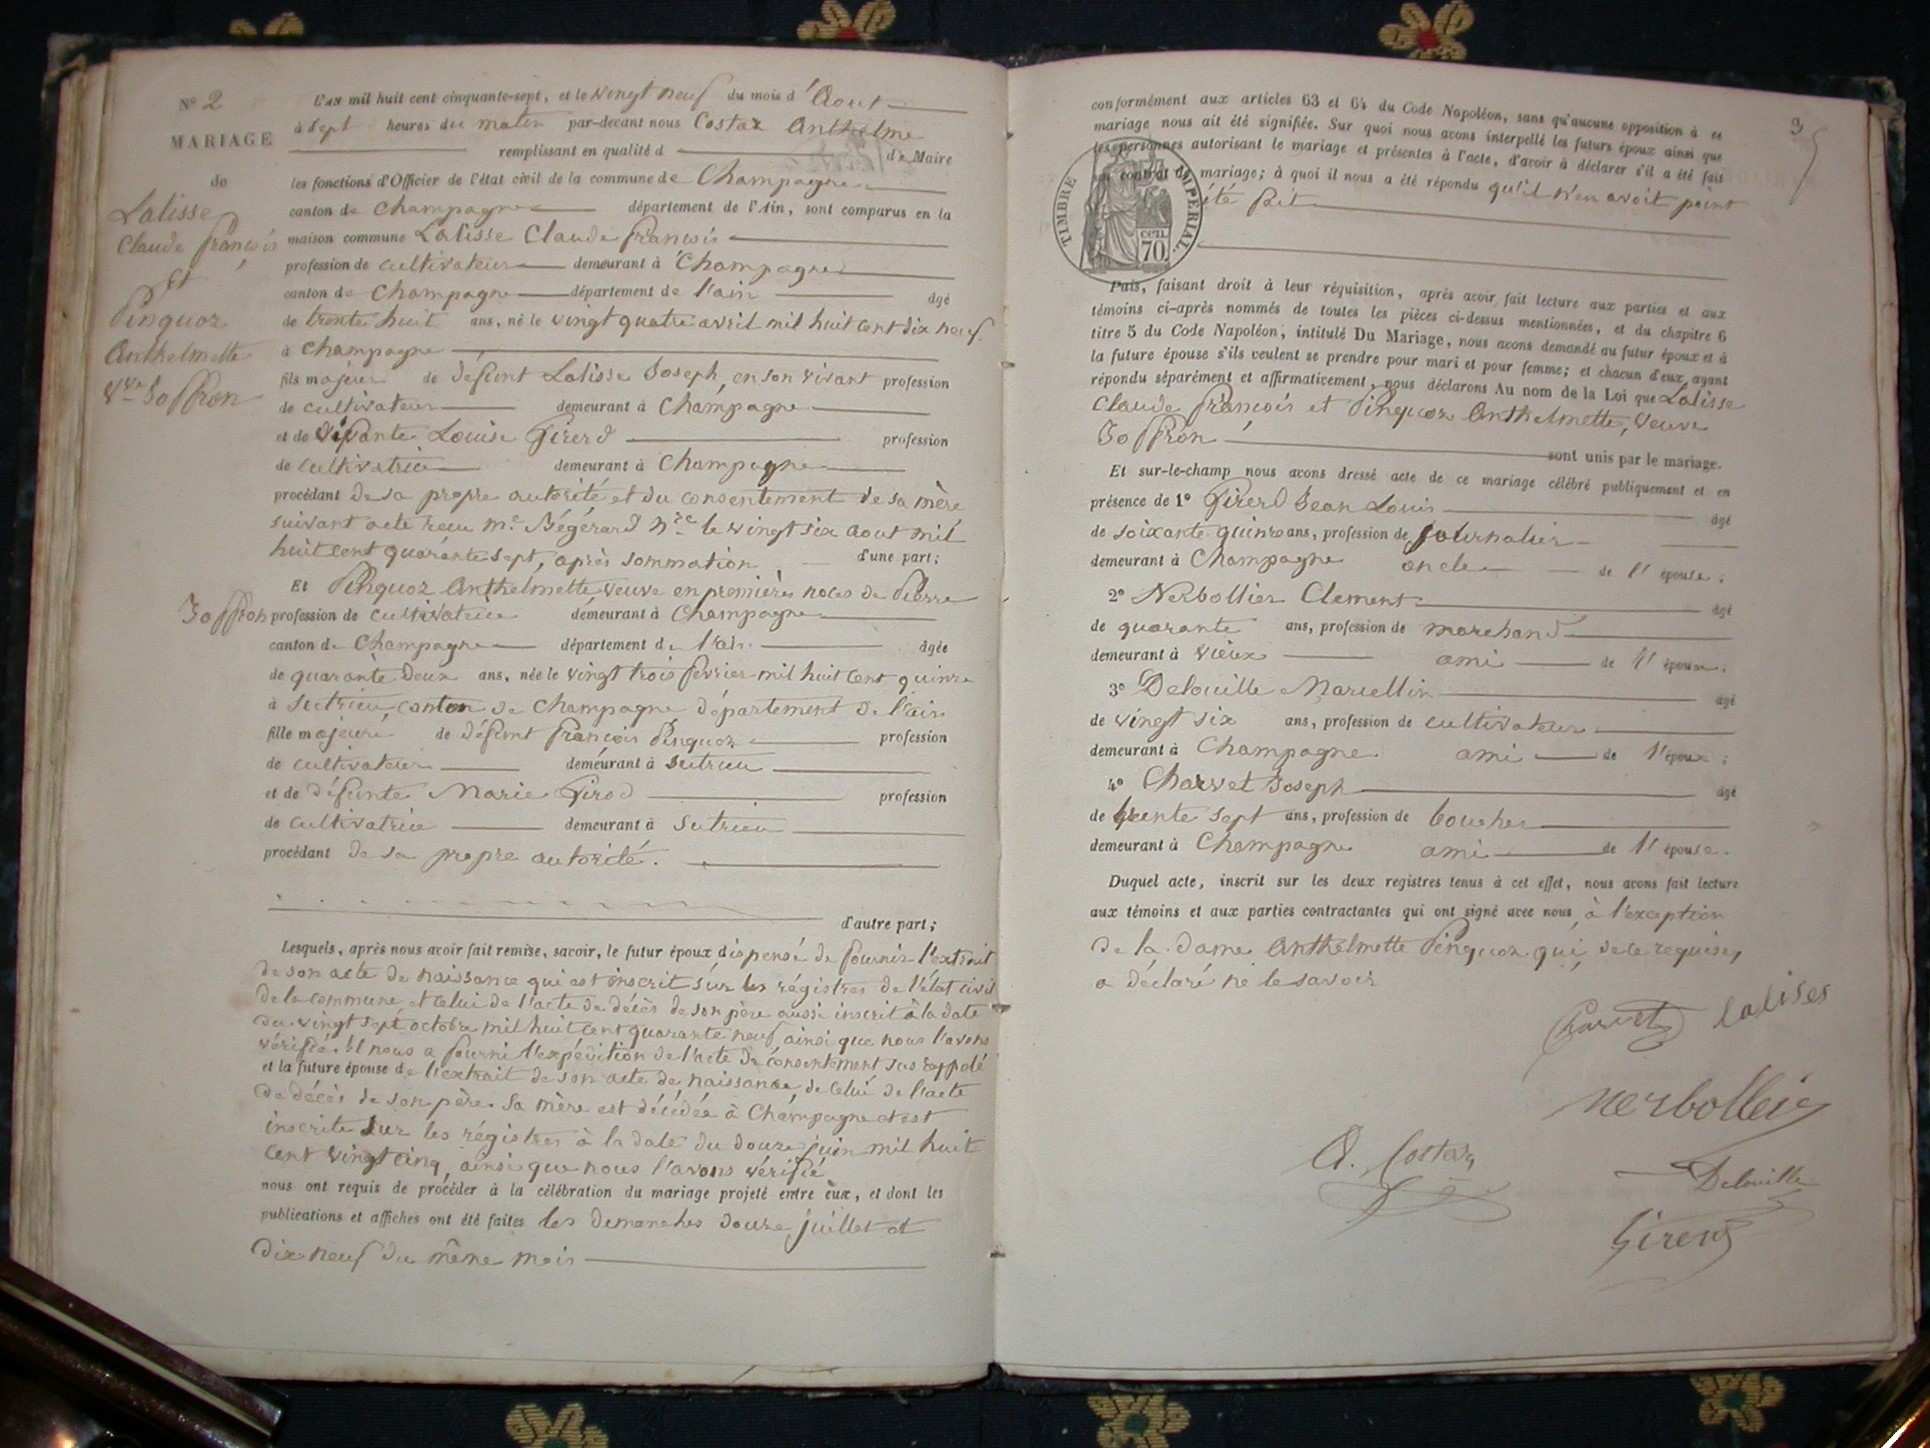 N° 2
MARIAGE
de
Lalisse
Claude françois
Et
Pinquoz
Anthelmette
Vve Joffron
L'AN mil huit cent cinquante-sept, et le vingt neuf du mois d'Aout
à sept heures du matin par-devant nous Costaz Anthelme
remplissant en qualité d de Maire
les fonctions d'Officier de l'état civil de la commune de Champagne
canton de Champagne département de l'Ain, sont comparus en la
maison commune Lalisse Claude françois
profession de cultivateur demeurant à Champagne
canton de Champagne département de l'ain âgé
de trente huit ans, né le vingt quatre avril mil huit cent dix neuf
à Champagne
fils majeur de défunt Lalisse Joseph, en son vivant profession
de cultivateur demeurant à Champagne
et de vivante Louise Girerd profession
de cultivatrice demeurant à Champagne
procédant de sa propre autorité et du consentement de sa mère
suivant acte reçu me Bégérard nre le vingt six aout mil
huit cent quarante sept, après sommation d'une part;
Et Pinquoz Anthelmette veuve en premières noces de Pierre
Joffron profession de cultivatrice demeurant à Champagne
canton de Champagne département de l'ain âgée
de quarante deux ans, née le vingt trois février mil huit cent quinze
à Sutrieu, canton de Champagne département de l'ain
fille majeure de défunt françois Pinquoz profession
de cultivateur demeurant à Sutrieu
et de défunte Marie Girod profession
de cultivatrice demeurant à Sutrieu
procédant de sa propre autorité.
d'autre part;
Lesquels, après nous avoir fait remise, savoir, le futur époux dispensé de fournir l'extrait
de son acte de naissance qui est inscrit sur les régistres de l'état civil
de la commune et celui de l'acte de décès de son père aussi inscrit à la date
du vingt sept octobre mil huit cent quarante neuf, ainsi que nous l'avons
vérifié. Il nous a fourni l'expédition de l'acte de consentement sus rappelé
et la future épouse de l'extrait de son acte de naissance, de celui de l'acte
de décès de son père. Sa mère est décédée à Champagne et est
inscrite sur les régistres à la date du douze juin mil huit
cent vingt cinq, ainsi que nous l'avons vérifié
nous ont requis de procéder à la célébration du mariage projeté entre eux, et dont les
publications et affiches ont été faites les dimanches douze juillet et
dix neuf du même mois
3
conformément aux articles 63 et 64 du Code Napoléon, sans qu'aucune opposition à ce
mariage nous ait été signifiée. Sur quoi nous avons interpellé les futurs époux ainsi que
les personnes autorisant le mariage et présentes à l'acte, d'avoir à déclarer s'il a été fait
un contrat de mariage; à quoi il nous a été répondu qu'il n'en avoit point
été fait
TIMBRE IMPERIAL
70 cen.
Puis, faisant droit à leur réquisition, après avoir fait lecture aux parties et aux
témoins ci-après nommés de toutes les pièces ci-dessus mentionnées, et du chapitre 6
titre 5 du Code Napoléon, intitulé Du Mariage, nous avons demandé au futur époux et à
la future épouse s'ils veulent se prendre pour mari et pour femme; et chacun d'eux ayant
répondu séparément et affirmativement, nous déclarons Au nom de la Loi que Lalisse
Claude françois et Pinquoz Anthelmette, veuve
Joffron
sont unis par le mariage.
Et sur-le-champ nous avons dressé acte de ce mariage célébré publiquement et en
présence de 1° Girerd Jean Louis âgé
de soixante quinze ans, profession de journalier
demeurant à Champagne oncle de l'épouse;
2° Nerbollier Clement âgé
de quarante ans, profession de marchand
demeurant à vieux ami de l'épouse.
3° Delouille Marcellin âgé
de vingt six ans, profession de cultivateur
demeurant à Champagne ami de l'époux;
4° Charvet Joseph âgé
de trente sept ans, profession de boucher
demeurant à Champagne ami de l'épouse.
Duquel acte, inscrit sur les deux registres tenus à cet effet, nous avons fait lecture
aux témoins et aux parties contractantes qui ont signé avec nous à l'exception
de la dame Anthelmette Pinquoz qui, de ce requise,
a déclaré ne le savoir
lalises
Nerbollier
A. Costaz
Delouille
Girerd